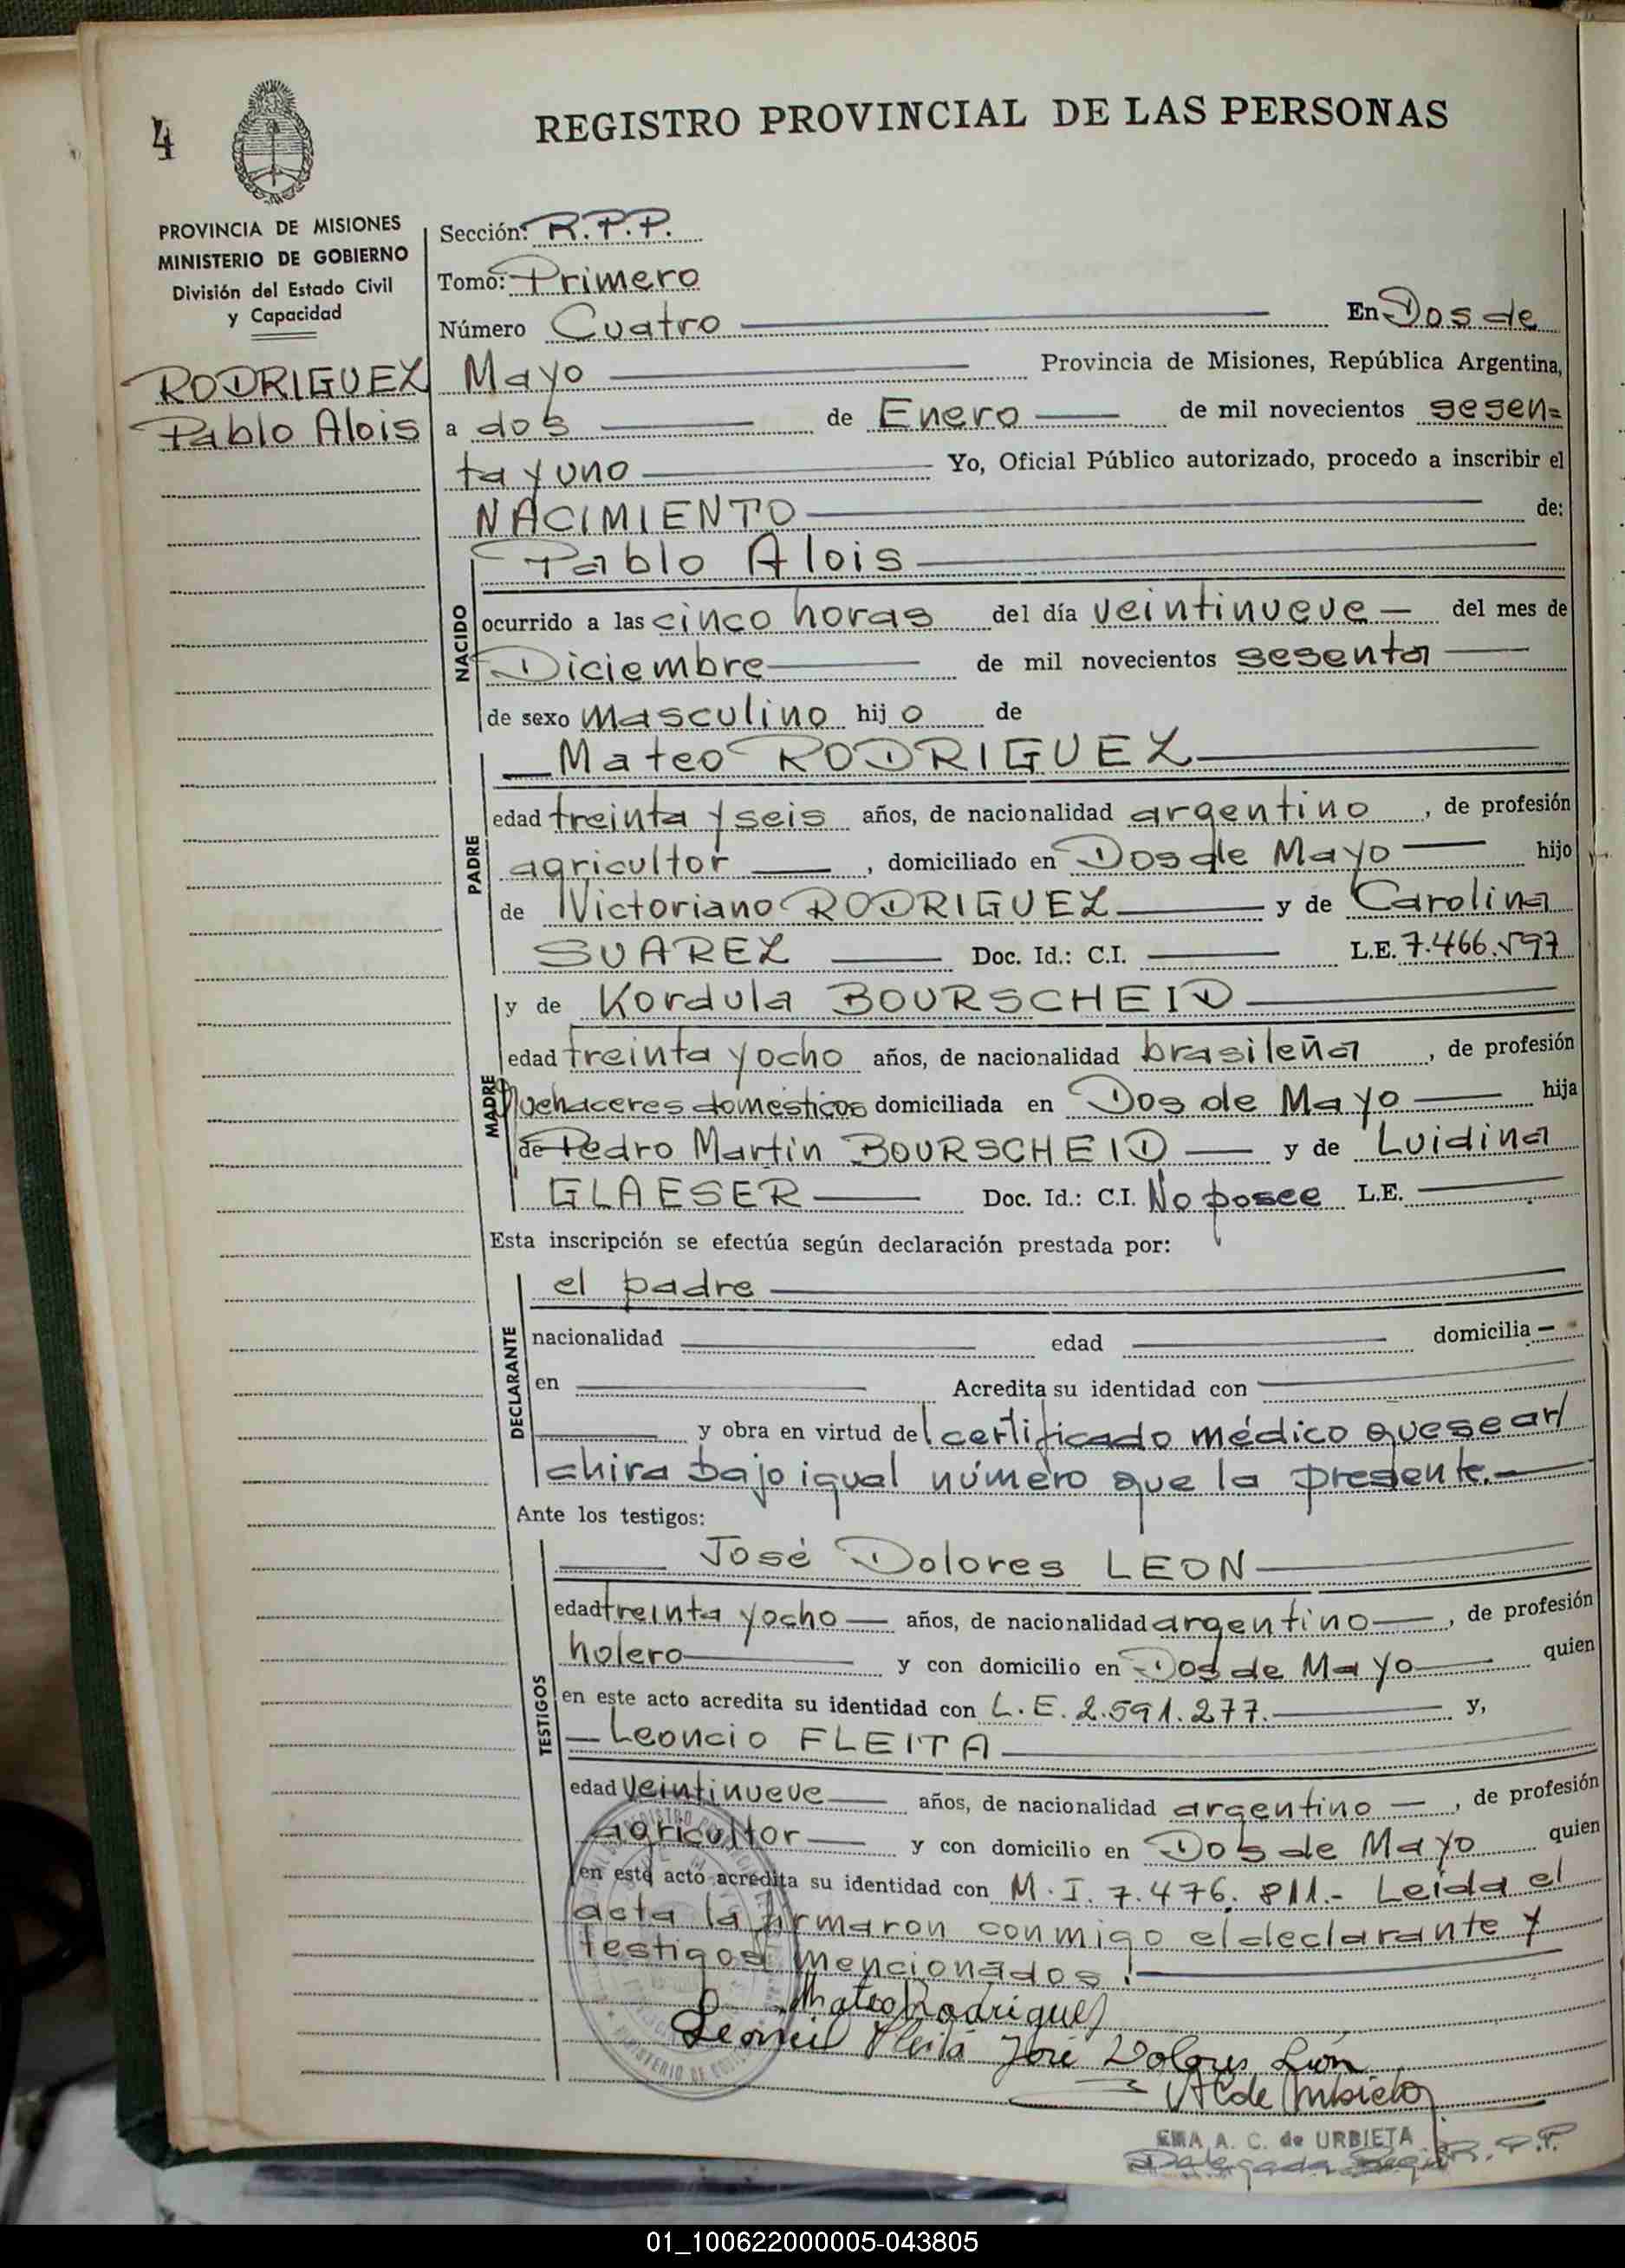 4
REGISTRO PROVINCIAL DE LAS PERSONAS
PROVINCIA DE MISIONES
MINISTERIO DE GOBIERNO
División del Estado Civil
y Capacidad
RODRIGUEZ
Pablo Alois
Sección: R.P.P.
Tomo: Primero
Número Cuatro En Dos de
Mayo Provincia de Misiones, República Argentina,
a dos de Enero de mil novecientos sesen=
ta y uno Yo, Oficial Público autorizado, procedo a inscribir el
NACIMIENTO de:
NACIDO
Pablo Alois
ocurrido a las cinco horas del día veintinueve — del mes de
Diciembre de mil novecientos sesenta
de sexo masculino hijo de
PADRE
Mateo RODRIGUEZ
edad treinta y seis años, de nacionalidad argentino, de profesión
agricultor, domiciliado en Dos de Mayo hijo
de Victoriano RODRIGUEZ y de Carolina
SUAREZ Doc. Id.: C.I. L.E. 7.466.597
MADRE
y de Kordula BOURSCHEID
edad treinta y ocho años, de nacionalidad brasileña, de profesión
quehaceres domésticos domiciliada en Dos de Mayo hija
de Pedro Martín BOURSCHEID y de Luidina
GLAESER Doc. Id.: C.I. No posee L.E.
Esta inscripción se efectúa según declaración prestada por:
DECLARANTE
el padre
nacionalidad edad domicilia —
en Acredita su identidad con
y obra en virtud del certificado médico que se ar/
chira bajo igual número que la presente.—
Ante los testigos:
TESTIGOS
José Dolores LEON
edad treinta y ocho — años, de nacionalidad argentino —, de profesión
holero y con domicilio en Dos de Mayo quien
en este acto acredita su identidad con L.E. 2.591.277. y,
— Leoncio FLEITA
edad veintinueve — años, de nacionalidad argentino —, de profesión
agricultor — y con domicilio en Dos de Mayo quien
en este acto acredita su identidad con M.I. 7.476.811.- Leída el
acta la firmaron conmigo el declarante y
testigos mencionados!
Mateo Rodriguez
Fleita José Dolores León
A C de Urbieta
EMA A. C. de URBIETA
Delegada R.P.P.
01_100622000005-043805